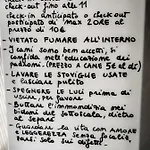 check-out fino alle 11
check-in anticipato o check out
posticipato di max 2 ore al
prezzo di 10€
- VIETATO FUMARE ALL'INTERNO
- I cani sono ben accetti, si
confida nell'educazione dei
padroni. (PREZZO A CANE 5€ al dì)
- LAVARE LE STOVIGLIE USATE
e lasciare pulito
- SPEGNERE LE LUCI prima di
uscire, per favore
- Buttare l'immondizia nei
del sottoscala, divisi
al sapone
- Guardare la vita con AMORE
e LEGGEREZZA senza fretta,
sui difetti.